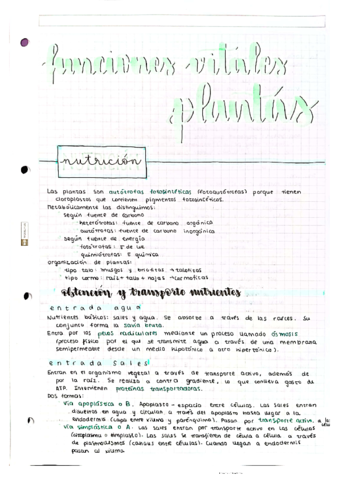 funciones vitales
plantas
nutrición
Las plantas son autótrofas fotosintéticas (fotoautótrofas) porque tienen
cloroplastos que contienen pigmentos fotosintéticos.
Metabólicamente las distinguimos:
según fuente de carbono
heterótrofas: fuente de carbono orgánica
autótrofas: fuente de carbono inorgánica
según fuente de energía
fotótrofas: E de luz
quimiótrofas: E química
organización de plantas:
tipo talo: musgos y
tipo cormo: raíz + tallo + hojas
obtención y transporte nutrientes
entrada agua
Nutrientes básicos: sales y agua. Se absorbe a través de las raíces. Su
conjunto forma la savia bruta.
Entra por los pelos radiculares mediante un proceso llamado ósmosis
(proceso físico por el que se transmite agua a través de una membrana
semipermeable desde un medio hipotónico a otro hipertónico).
entrada sales
Entran en el organismo vegetal a través de transporte activo, además de
por la raíz. Se realiza a contra gradiente, lo que conlleva gasto de
ATP. Intervienen proteínas transportadoras.
Dos formas:
vía apoplástica o B. Apoplasto = espacio entre células. Las sales entran
disueltas en agua y circulan a través del apoplasto hasta llegar a la
endodermis (capa entre xilema y parénquima). Pasan por transporte activo a la
vía simplástica o A. Las sales entran por transporte activo en las células
(citoplasma = simplasto). Las sales se transfieren de célula a célula a través
de plasmodesmos (canales entre células). Cuando llegan a endodermis
pasan al xilema.